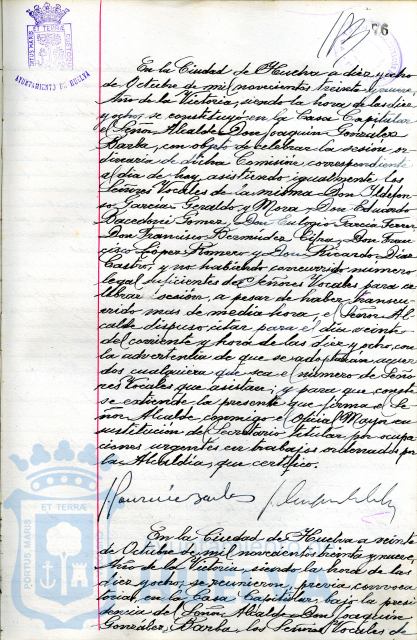 76
AYUNTAMIENTO DE HUELVA
En la Ciudad de Huelva a diez y ocho
de Octubre de mil novecientos treinta y nueve,
Año de la Victoria, siendo la hora de las diez
y ocho, se constituyó en la Casa Capitular
el Señor Alcalde Don Joaquín González
Barba, con objeto de celebrar la sesión or-
dinaria de dicha Comisión correspondiente
al día de hoy, asistiendo igualmente los
Señores Vocales de la misma Don Ildefon-
so García Geraldo y Mora, Don Eduardo
Don Eulogio García Ferrer,
Don Francisco Bermúdez Cifra, Don Fran-
cisco López Romero y Don Ricardo Díaz
Castro, y no habiendo concurrido número
legal suficiente de Señores Vocales para ce-
lebrar sesión, a pesar de haber transcu-
rrido mas de media hora, el Señor Al-
calde dispuso citar para el día veinte
del corriente y hora de las diez y ocho, con
la advertencia de que se adoptarán acuer-
dos cualquiera que sea el número de Seño-
res Vocales que asistan; y para que conste
se extiende la presente que firma el Se-
ñor Alcalde conmigo el Oficial Mayor en
sustitución del Secretario titular por ocupa-
ciones urgentes en trabajos ordenados por
la Alcaldía, que certifico.
En la Ciudad de Huelva a veinte
de Octubre de mil novecientos treinta y nueve,
Año de la Victoria, siendo la hora de las
diez y ocho, se reunieron, previa convoca-
toria, en la Casa Capitular, bajo la presi-
dencia del Señor Alcalde Don Joaquín
González Barba, los Señores Vocales de
PORTUS MARIS ET TERRAE